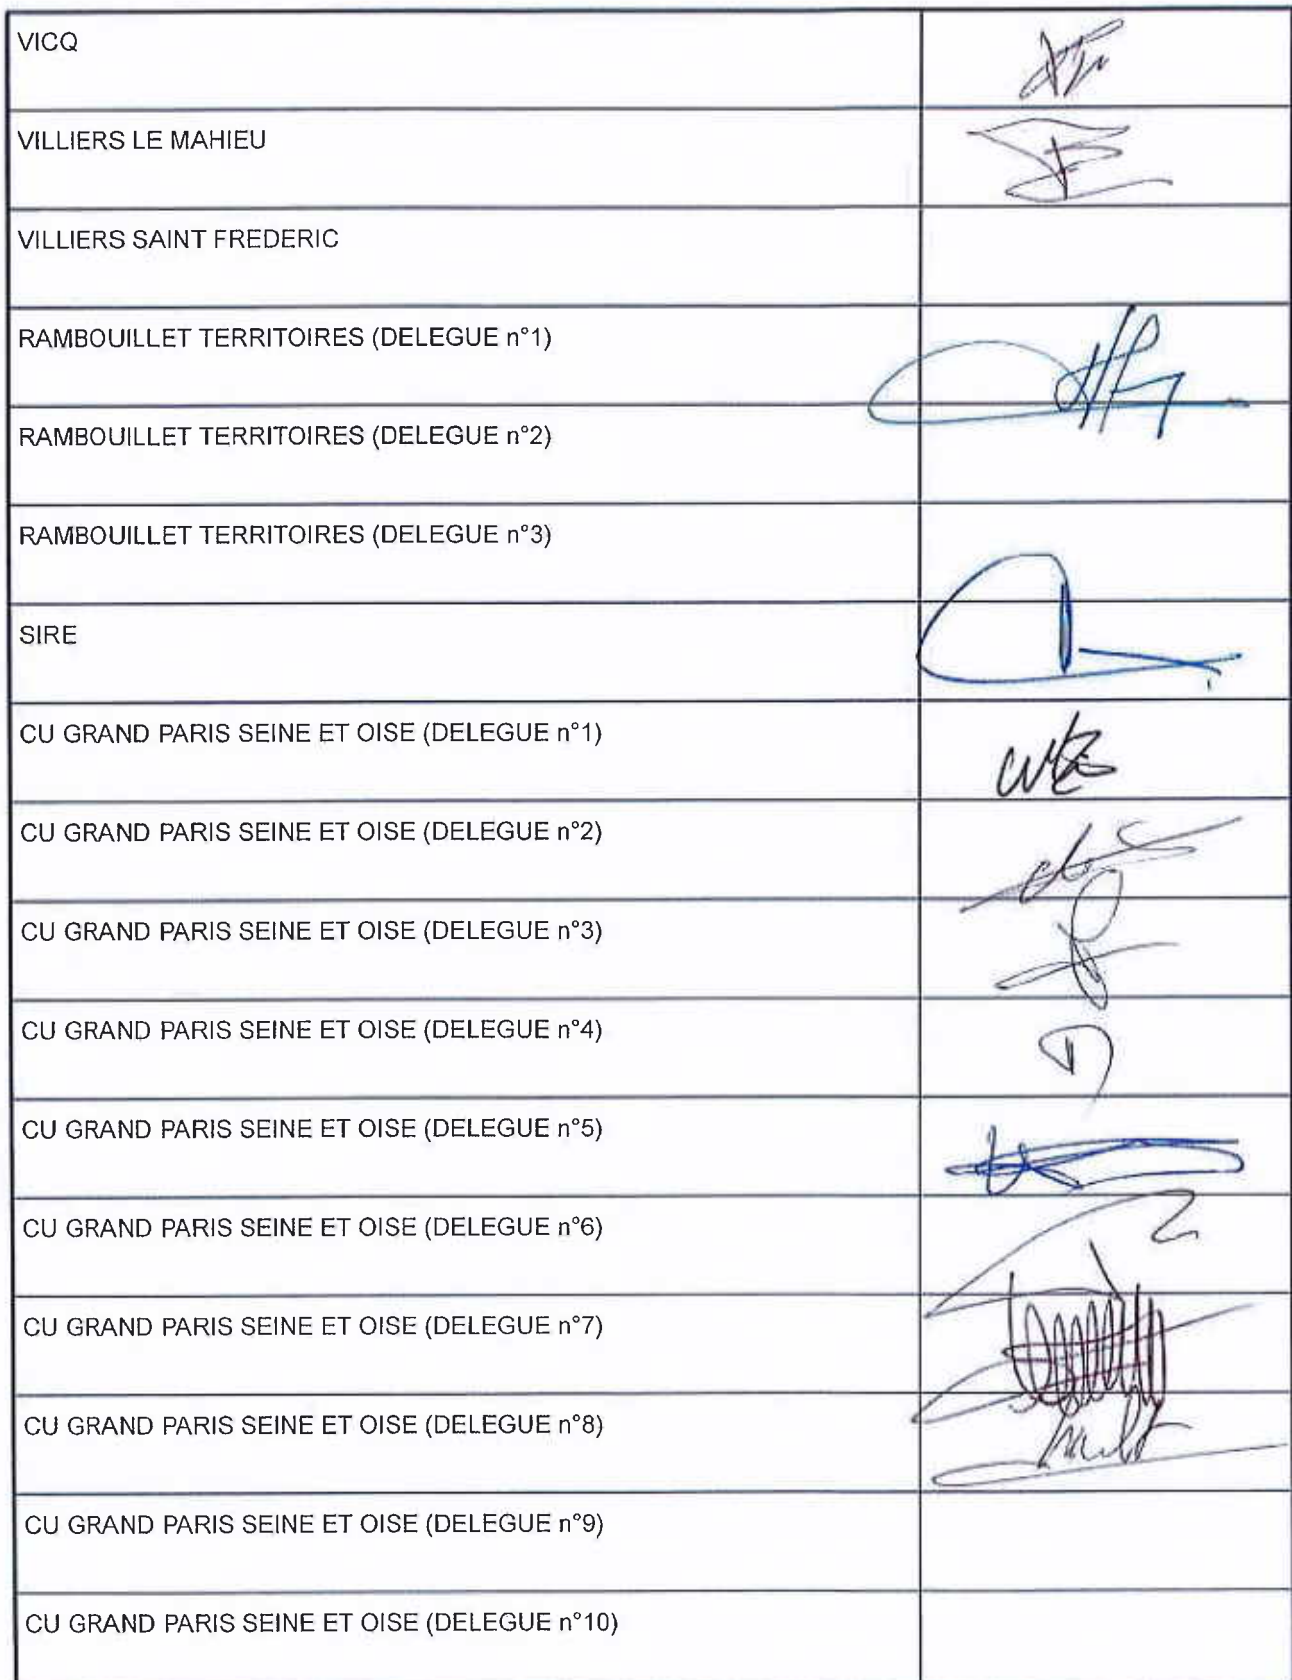 VICQ
VILLIERS LE MAHIEU
VILLIERS SAINT FREDERIC
RAMBOUILLET TERRITOIRES (DELEGUE n°1)
RAMBOUILLET TERRITOIRES (DELEGUE n°2)
RAMBOUILLET TERRITOIRES (DELEGUE n°3)
SIRE
CU GRAND PARIS SEINE ET OISE (DELEGUE n°1)
CU GRAND PARIS SEINE ET OISE (DELEGUE n°2)
CU GRAND PARIS SEINE ET OISE (DELEGUE n°3)
CU GRAND PARIS SEINE ET OISE (DELEGUE n°4)
CU GRAND PARIS SEINE ET OISE (DELEGUE n°5)
CU GRAND PARIS SEINE ET OISE (DELEGUE n°6)
CU GRAND PARIS SEINE ET OISE (DELEGUE n°7)
CU GRAND PARIS SEINE ET OISE (DELEGUE n°8)
CU GRAND PARIS SEINE ET OISE (DELEGUE n°9)
CU GRAND PARIS SEINE ET OISE (DELEGUE n°10)